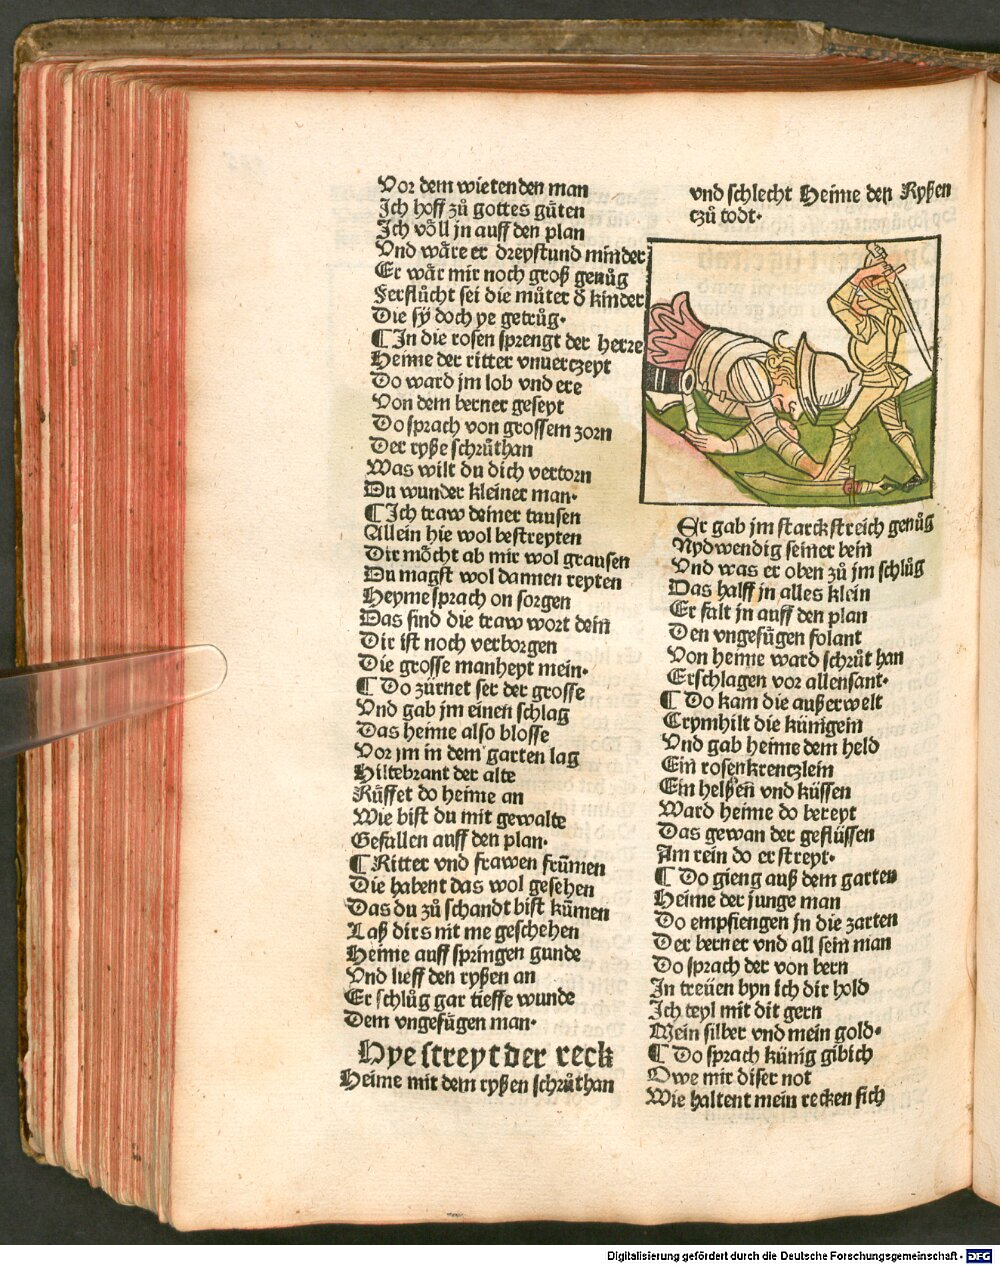 Vor dem wietenden man
Ich hoff zů gottes gůten
Ich vȯll jn auff den plan
Vnd wåre er dreystund minder
Er wår mir noch groß genůg
Ferflůcht sei die můter d̄ kinder
Die sÿ doch ye getrůg·
¶ In die rosen sprengt der herre
Heime der ritter vnuerczeyt
Do ward jm lob vnd ere
Von dem berner geseyt
Do sprach von grossem zorn
Der ryße schrůthan
Was wilt du dich vertorn
Du wunder kleiner man·
¶ Ich traw deiner tausen
Allein hie wol bestreyten
Dir mȯcht ab mir wol grausen
Du magst wol dannen reyten
Heyme sprach on sorgen
Das sind die traw wort dein
Dir ist noch verborgen
Die grosse manheyt mein·
¶ Do zürnet ser der grosse
Vnd gab jm einen schlag
Das heime also blosse
Vor jm in dem garten lag
Hiltebrant der alte
Růffet do heime an
Wie bist du mit gewalte
Gefallen auff den plan·
¶ Ritter vnd frawen frům̄en
Die habent das wol gesehen
Das du zů schandt bist kům̄en
Laß dirs nit me geschehen
Heime auff springen gunde
Vnd lieff den ryßen an
Er schlůg gar tieffe wunde
Dem vngefůgen man·
Hye streyt der reck
Heime mit dem ryßen schrůthan
vnd schlecht Heime den Ryßen
czů todt·
Er gab jm starck streich genůg
Nydwendig seiner bein
Vnd was er oben zů jm schlůg
Das halff jn alles klein
Er falt jn auff den plan
Den vngefůgen folant
Von heime ward schrůt han
Erschlagen vor allensant·
¶ Do kam die außerwelt
Crymhilt die künigein
Vnd gab heime dem held
Ein rosenkrenczlein
Ein helßen vnd küssen
Ward heime do bereyt
Das gewan der geflüssen
Am rein do er streyt·
¶ Do gieng auß dem garten
Heime der junge man
Do empfiengen jn die zarten
Der berner vnd all sein man
Do sprach der von bern
In treüen byn ich dir hold
Ich teyl mit dit gern
Mein silber vnd mein gold·
¶ Do sprach künig gibich
Owe mir diser not
Wie haltent mein recken sich
Digitalisierung gefördert durch die Deutsche Forschungsgemeinschaft - DFG